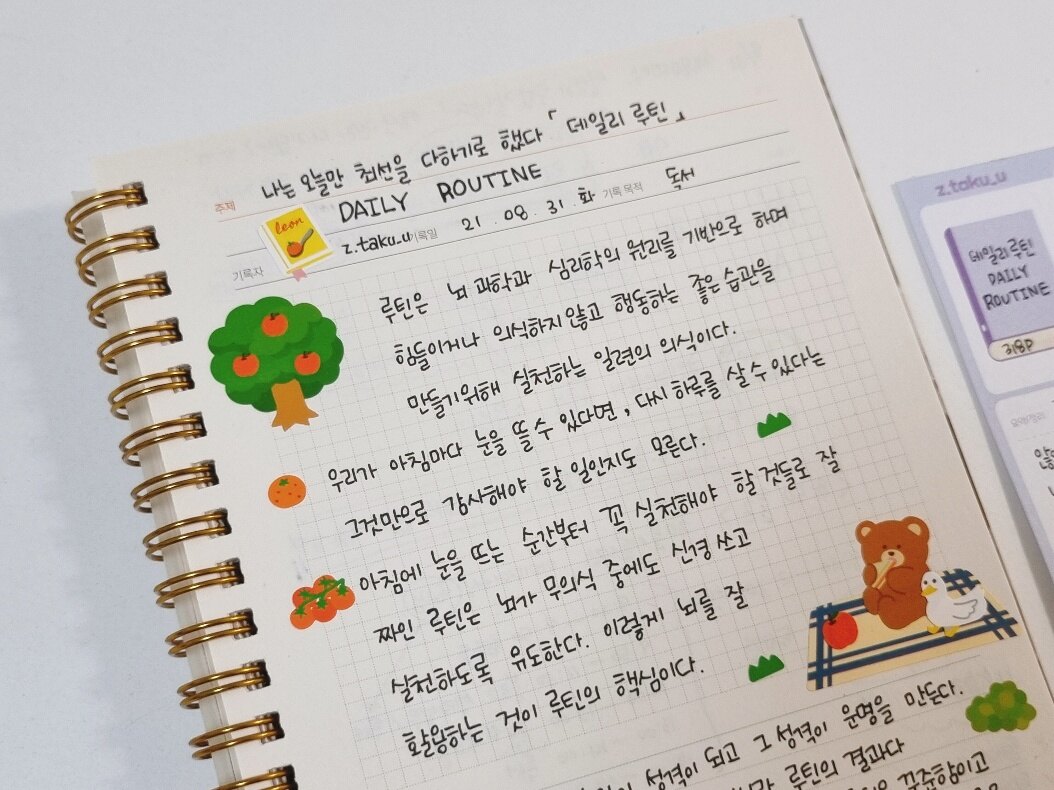 나는 오늘만 최선을 다하기로 했다 「데일리 루틴」
주제
DAILY ROUTINE
leon
기록자 z.taku.u 기록일 21. 08. 31. 화 기록 목적 독서
루틴은 뇌 과학과 심리학의 원리를 기반으로 하며
힘들이거나 의식하지 않고 행동하는 좋은 습관을
만들기위해 실천하는 일련의 의식이다.
우리가 아침마다 눈을 뜰 수 있다면, 다시 하루를 살 수 있다는
그것만으로 감사해야 할 일인지도 모른다.
아침에 눈을 뜨는 순간부터 꼭 실천해야 할 것들로 잘
짜인 루틴은 뇌가 무의식 중에도 신경 쓰고
실천하도록 유도한다. 이렇게 뇌를 잘
활용하는 것이 루틴의 핵심이다.
성격이 되고 그 성격이 운명을 만든다.
루틴의 결과다
꾸준함이고
z.taku_u
데일리 루틴
DAILY
ROUTINE
318P